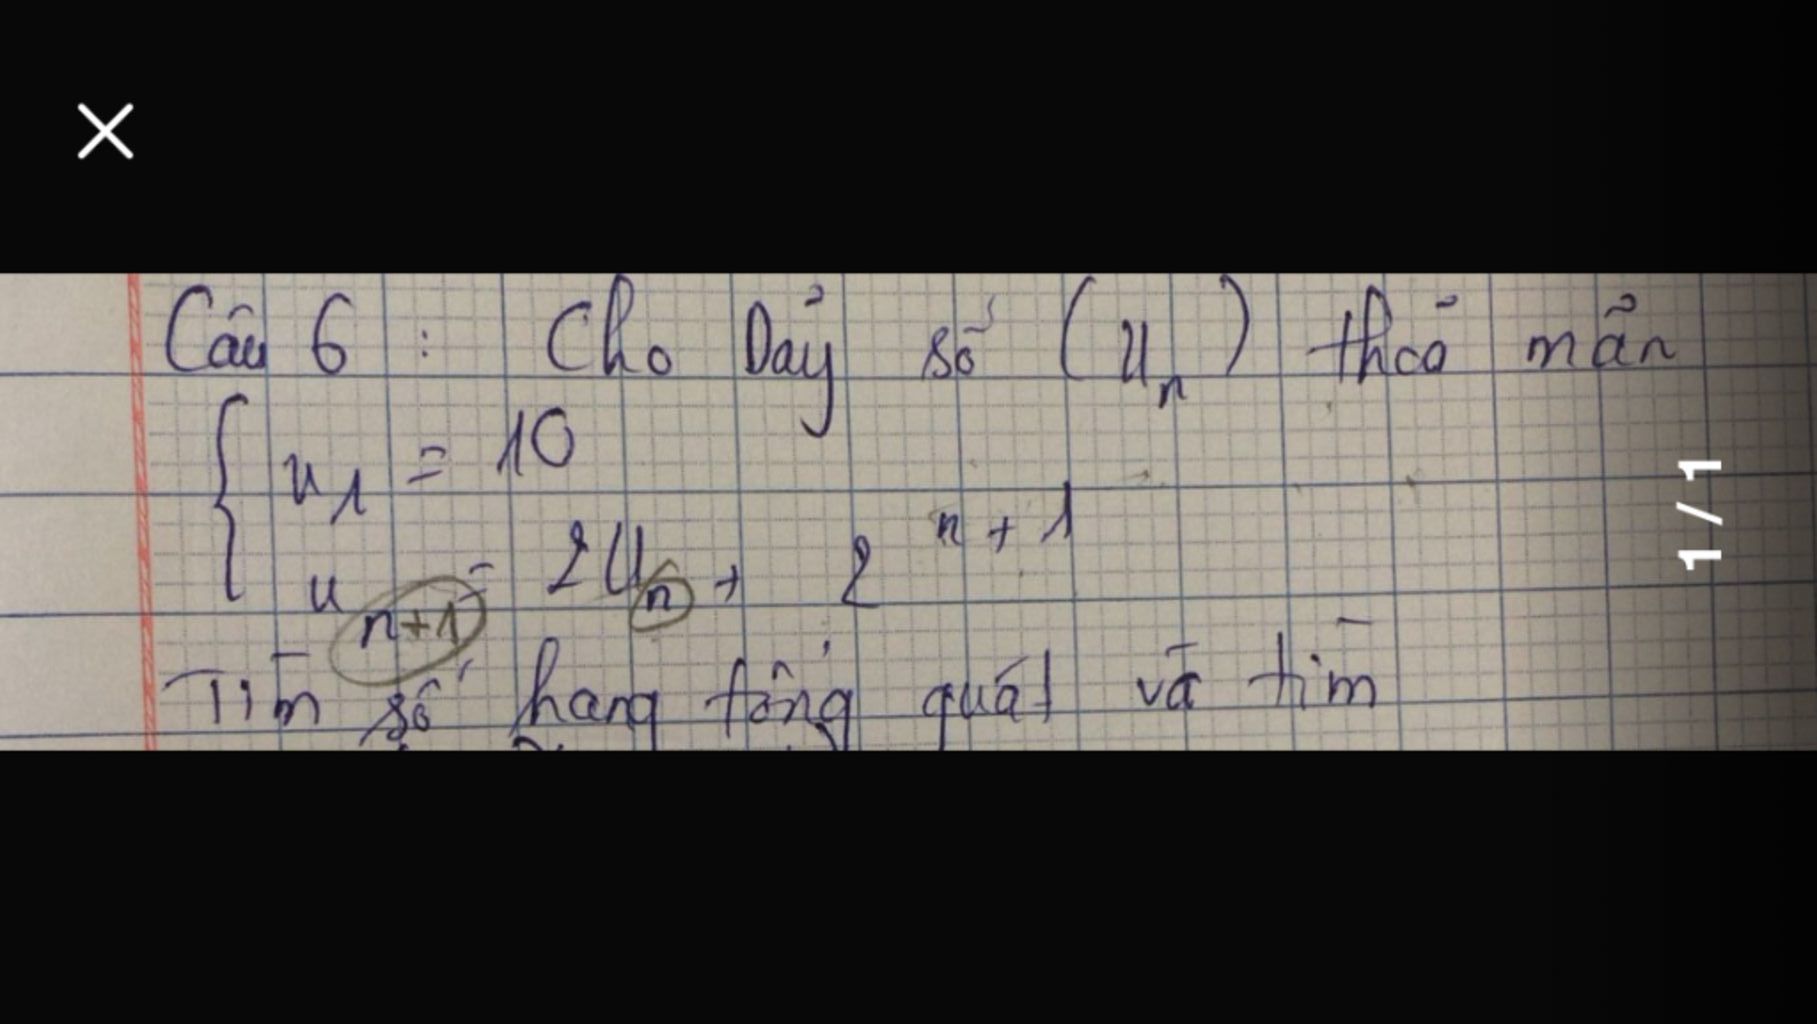 Câu 6 : Cho Dảy số (Un) thoả mãn
{ u1 = 10
u n+1 = 2Un + 2^n+1
Tìm số hạng tổng quát và tìm
1/1